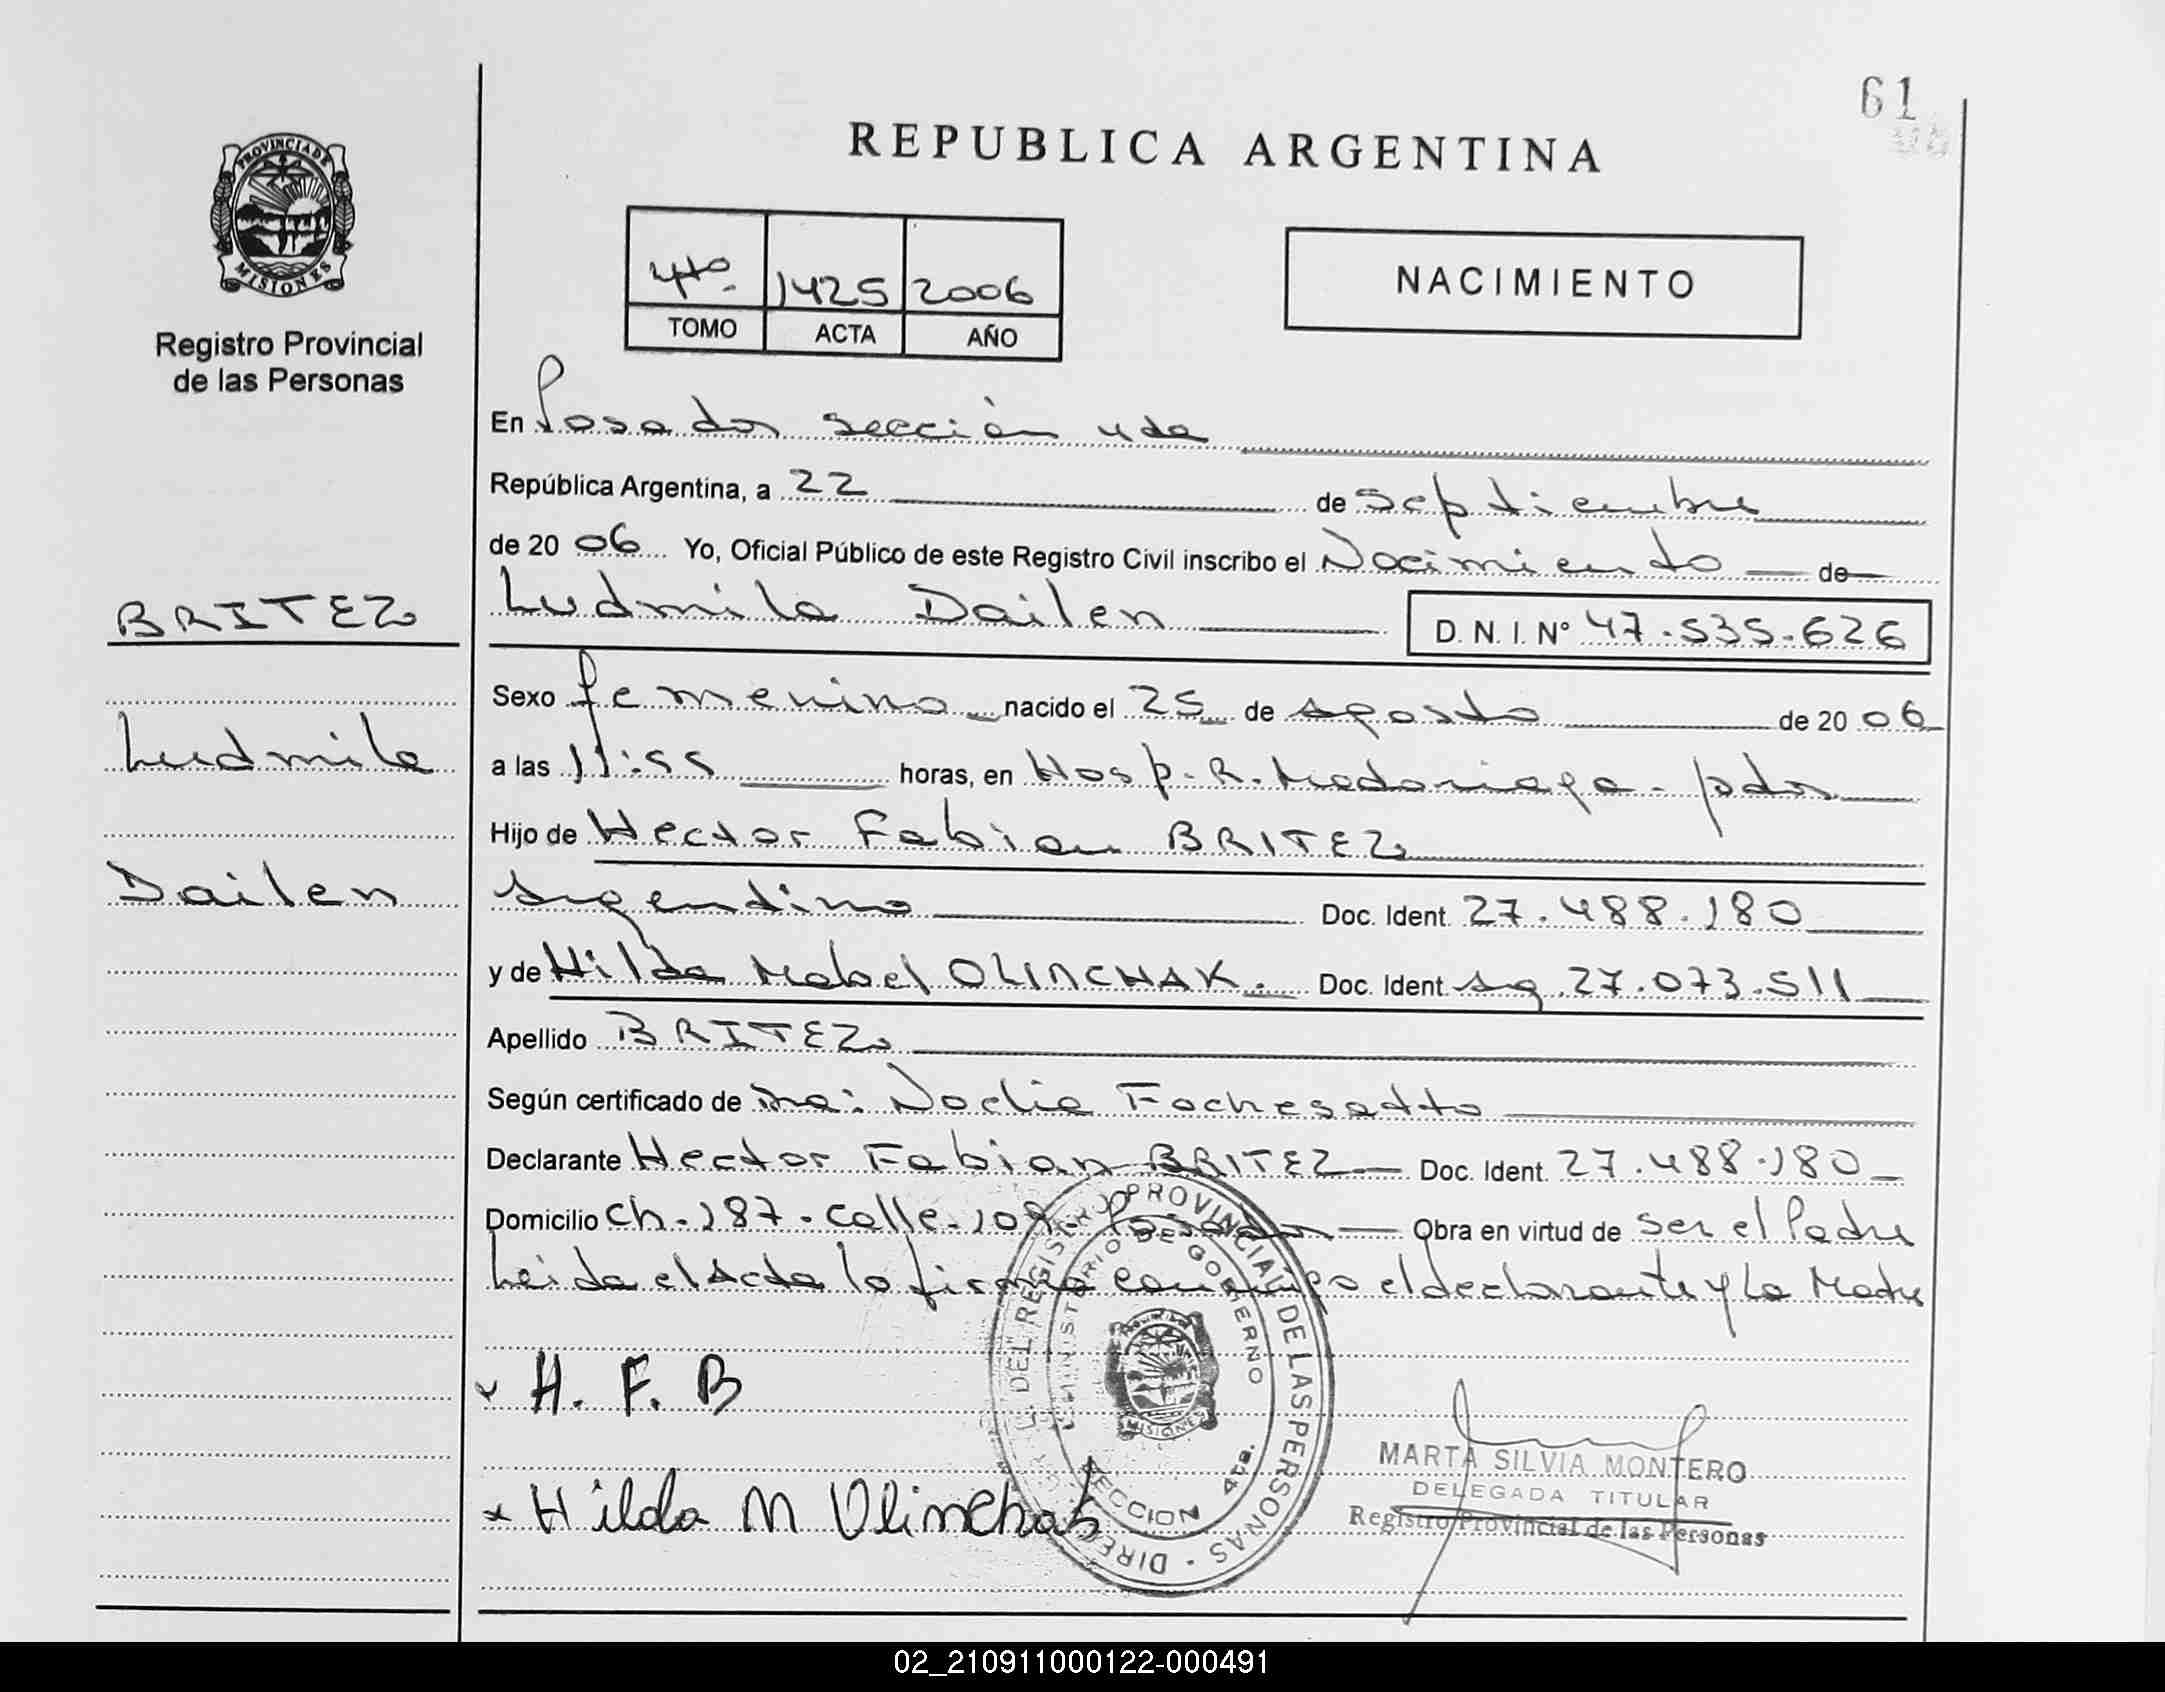 61
PROVINCIA DE
MISIONES
Registro Provincial
de las Personas
REPUBLICA ARGENTINA
4to. 1425 2006
TOMO ACTA AÑO
NACIMIENTO
En Posadas sección 4ta
República Argentina, a 22 de septiembre
de 2006 Yo, Oficial Público de este Registro Civil inscribo el Nacimiento de
BRITEZ
Ludmila Dailen D. N. I. N° 47.535.626
Sexo femenino nacido el 25 de Agosto de 2006
Ludmila
a las 11:55 horas, en Hosp. R. Madariaga - pdas
Hijo de Hector Fabian BRITEZ
Dailen
Argentino Doc. Ident. 27.488.180
y de Hilda Mabel OLINCHAK. Doc. Ident. Ag 27.073.511
Apellido BRITEZ
Según certificado de Noelia Fochesatto
Declarante Hector Fabian BRITEZ Doc. Ident. 27.488.180
Domicilio Ch. 187. calle. Posadas Obra en virtud de ser el Padre
Leida el Acta lo firma conmigo el declarante y la Madre
x H. F. B
x Hilda M Olinchak
PROVINCIAL DE LAS PERSONAS
DEL REGISTRO
MINISTERIO DE GOBIERNO
MISIONES
SECCION 4ta.
MARTA SILVIA MONTERO
DELEGADA TITULAR
Registro Provincial de las Personas
02_210911000122-000491